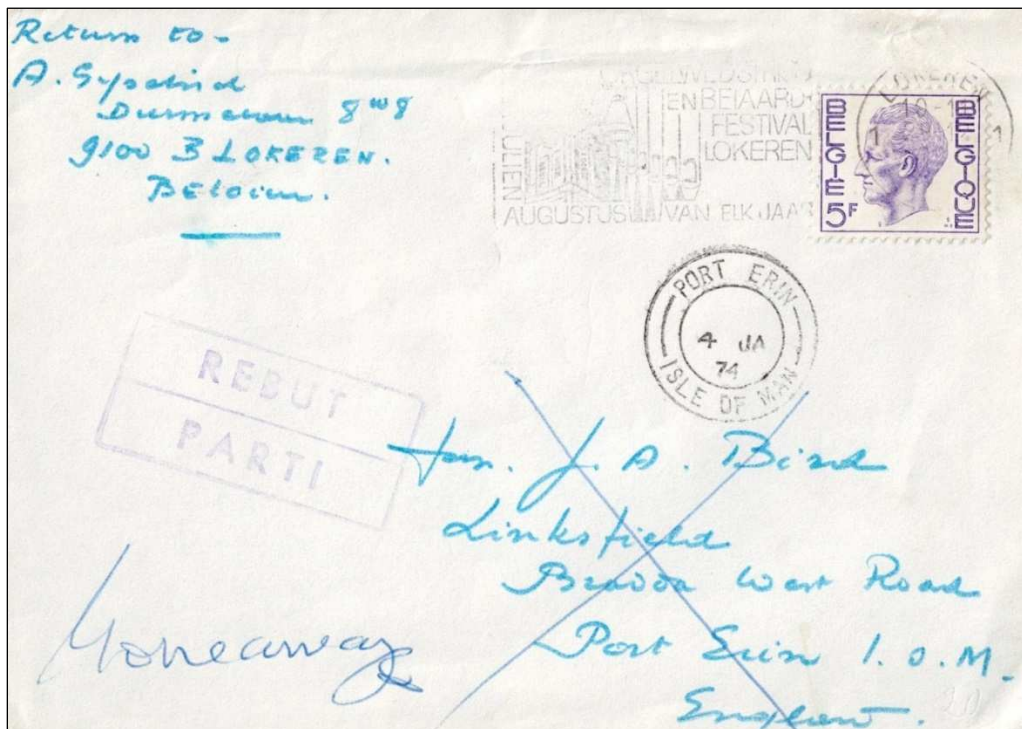 Return to-
A.
8
9100 B LOKEREN.
Belgium.
ORGELWEDSTRIJD
EN BEIAARD-
FESTIVAL
LOKEREN
AUGUSTUS VAN ELK JAAR
LOKEREN
BELGIË BELGIQUE
5F
PORT ERIN
4 JA
74
ISLE OF MAN
REBUT
PARTI
J. A. Bird
Linksfield
Bradda West Road
Port Erin I.O.M.
England.
Goneaway